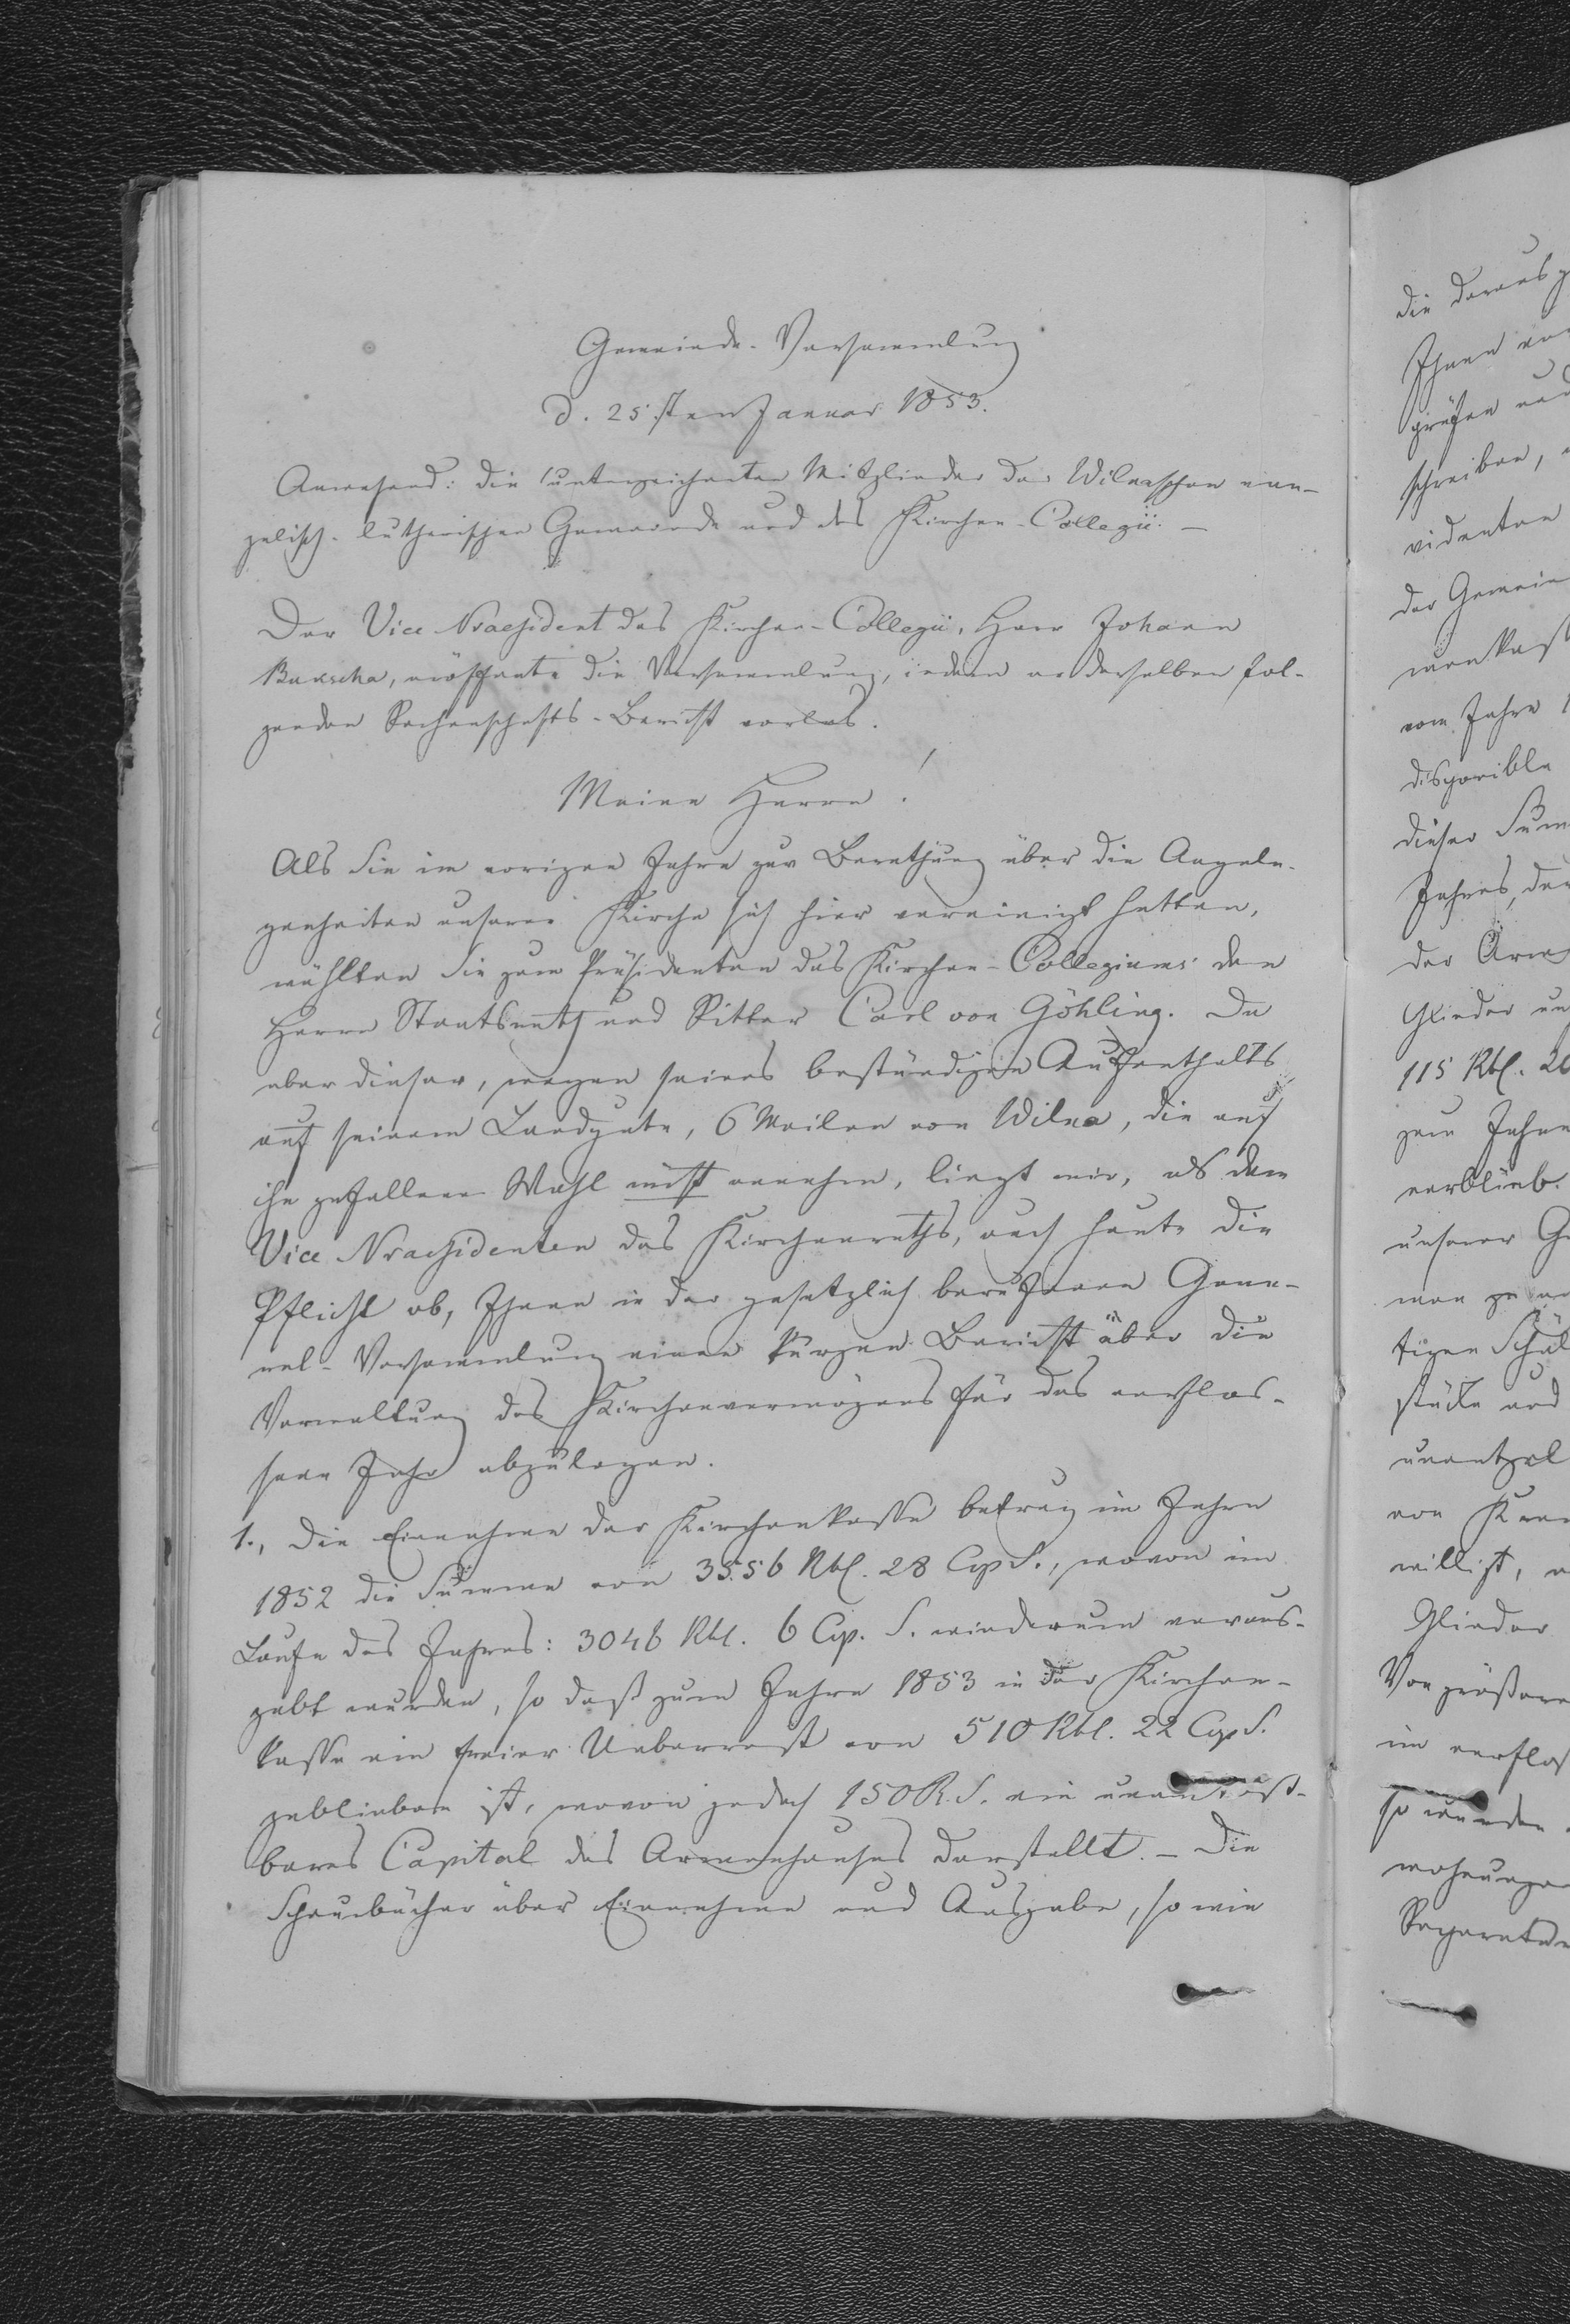 Gemeinde-Versammlung
d. 25sten Januar 1853.
Anwesend: die unterzeichneten Mitglieder der Wilnaschen evan-
gelisch-lutherischen Gemeinde und des Kirchen-Collegii. —
Der Vice Praesident des Kirchen-Collegii, Herr Johann
eröffnete die Versammlung, indem er derselben fol-
genden Rechenschafts-Bericht vorlas.
Meine Herren!
Als Sie im vorigen Jahre zur Berathung über die Angele-
genheiten unserer Kirche sich hier vereinigt hatten,
wählten Sie zum Präsidenten des Kirchen-Collegiums den
Herrn Staatsrath und Ritter Carl von Göhling. Da
aber dieser, wegen seines beständigen Aufenthalts
auf seinem Landgute, 6 Meilen von Wilna, die auf
ihn gefallene Wahl nicht annahm, liegt mir, als dem
Vice Praesidenten des Kirchenraths, auch heute die
Pflicht ob, Ihnen in der gesetzlich berufenen Gene-
ral-Versammlung einen kurzen Bericht über die
Verwaltung des Kirchenvermögens für das verflos-
sene Jahr abzulegen.
1., Die Einnahme der Kirchenkasse betrug im Jahre
1852 die Summe von 3556 Rbl. 28 Cop S., wovon im
Laufe des Jahres: 3046 Rbl. 6 Cop. S. wiederum veraus-
gabt wurden, so daß zum Jahre 1853 in der Kirchen-
kasse ein freier Ueberrest von 510 Rbl. 22 Cop S.
geblieben ist, wovon jedoch 150 R. S. ein unantast-
bares Capital des Armenhauses darstellt. — Die
Schnurbücher über Einnahme und Ausgabe, so wie
die daraus
Ihnen
prüfen und
schreiben,
videnten
der Gemein
menkass
vom Jahre
disponible
dieser Sum
Jahres, der
der Arme
Glieder
115 Rbl. 20
zum Jahre
verblieb.
unserer Ge
man zu
tigen Schul
stücke und
unentgel
von
willigt,
Glieder
Von größeren
im verflos
so wurden
wohnungen
Reparaturen